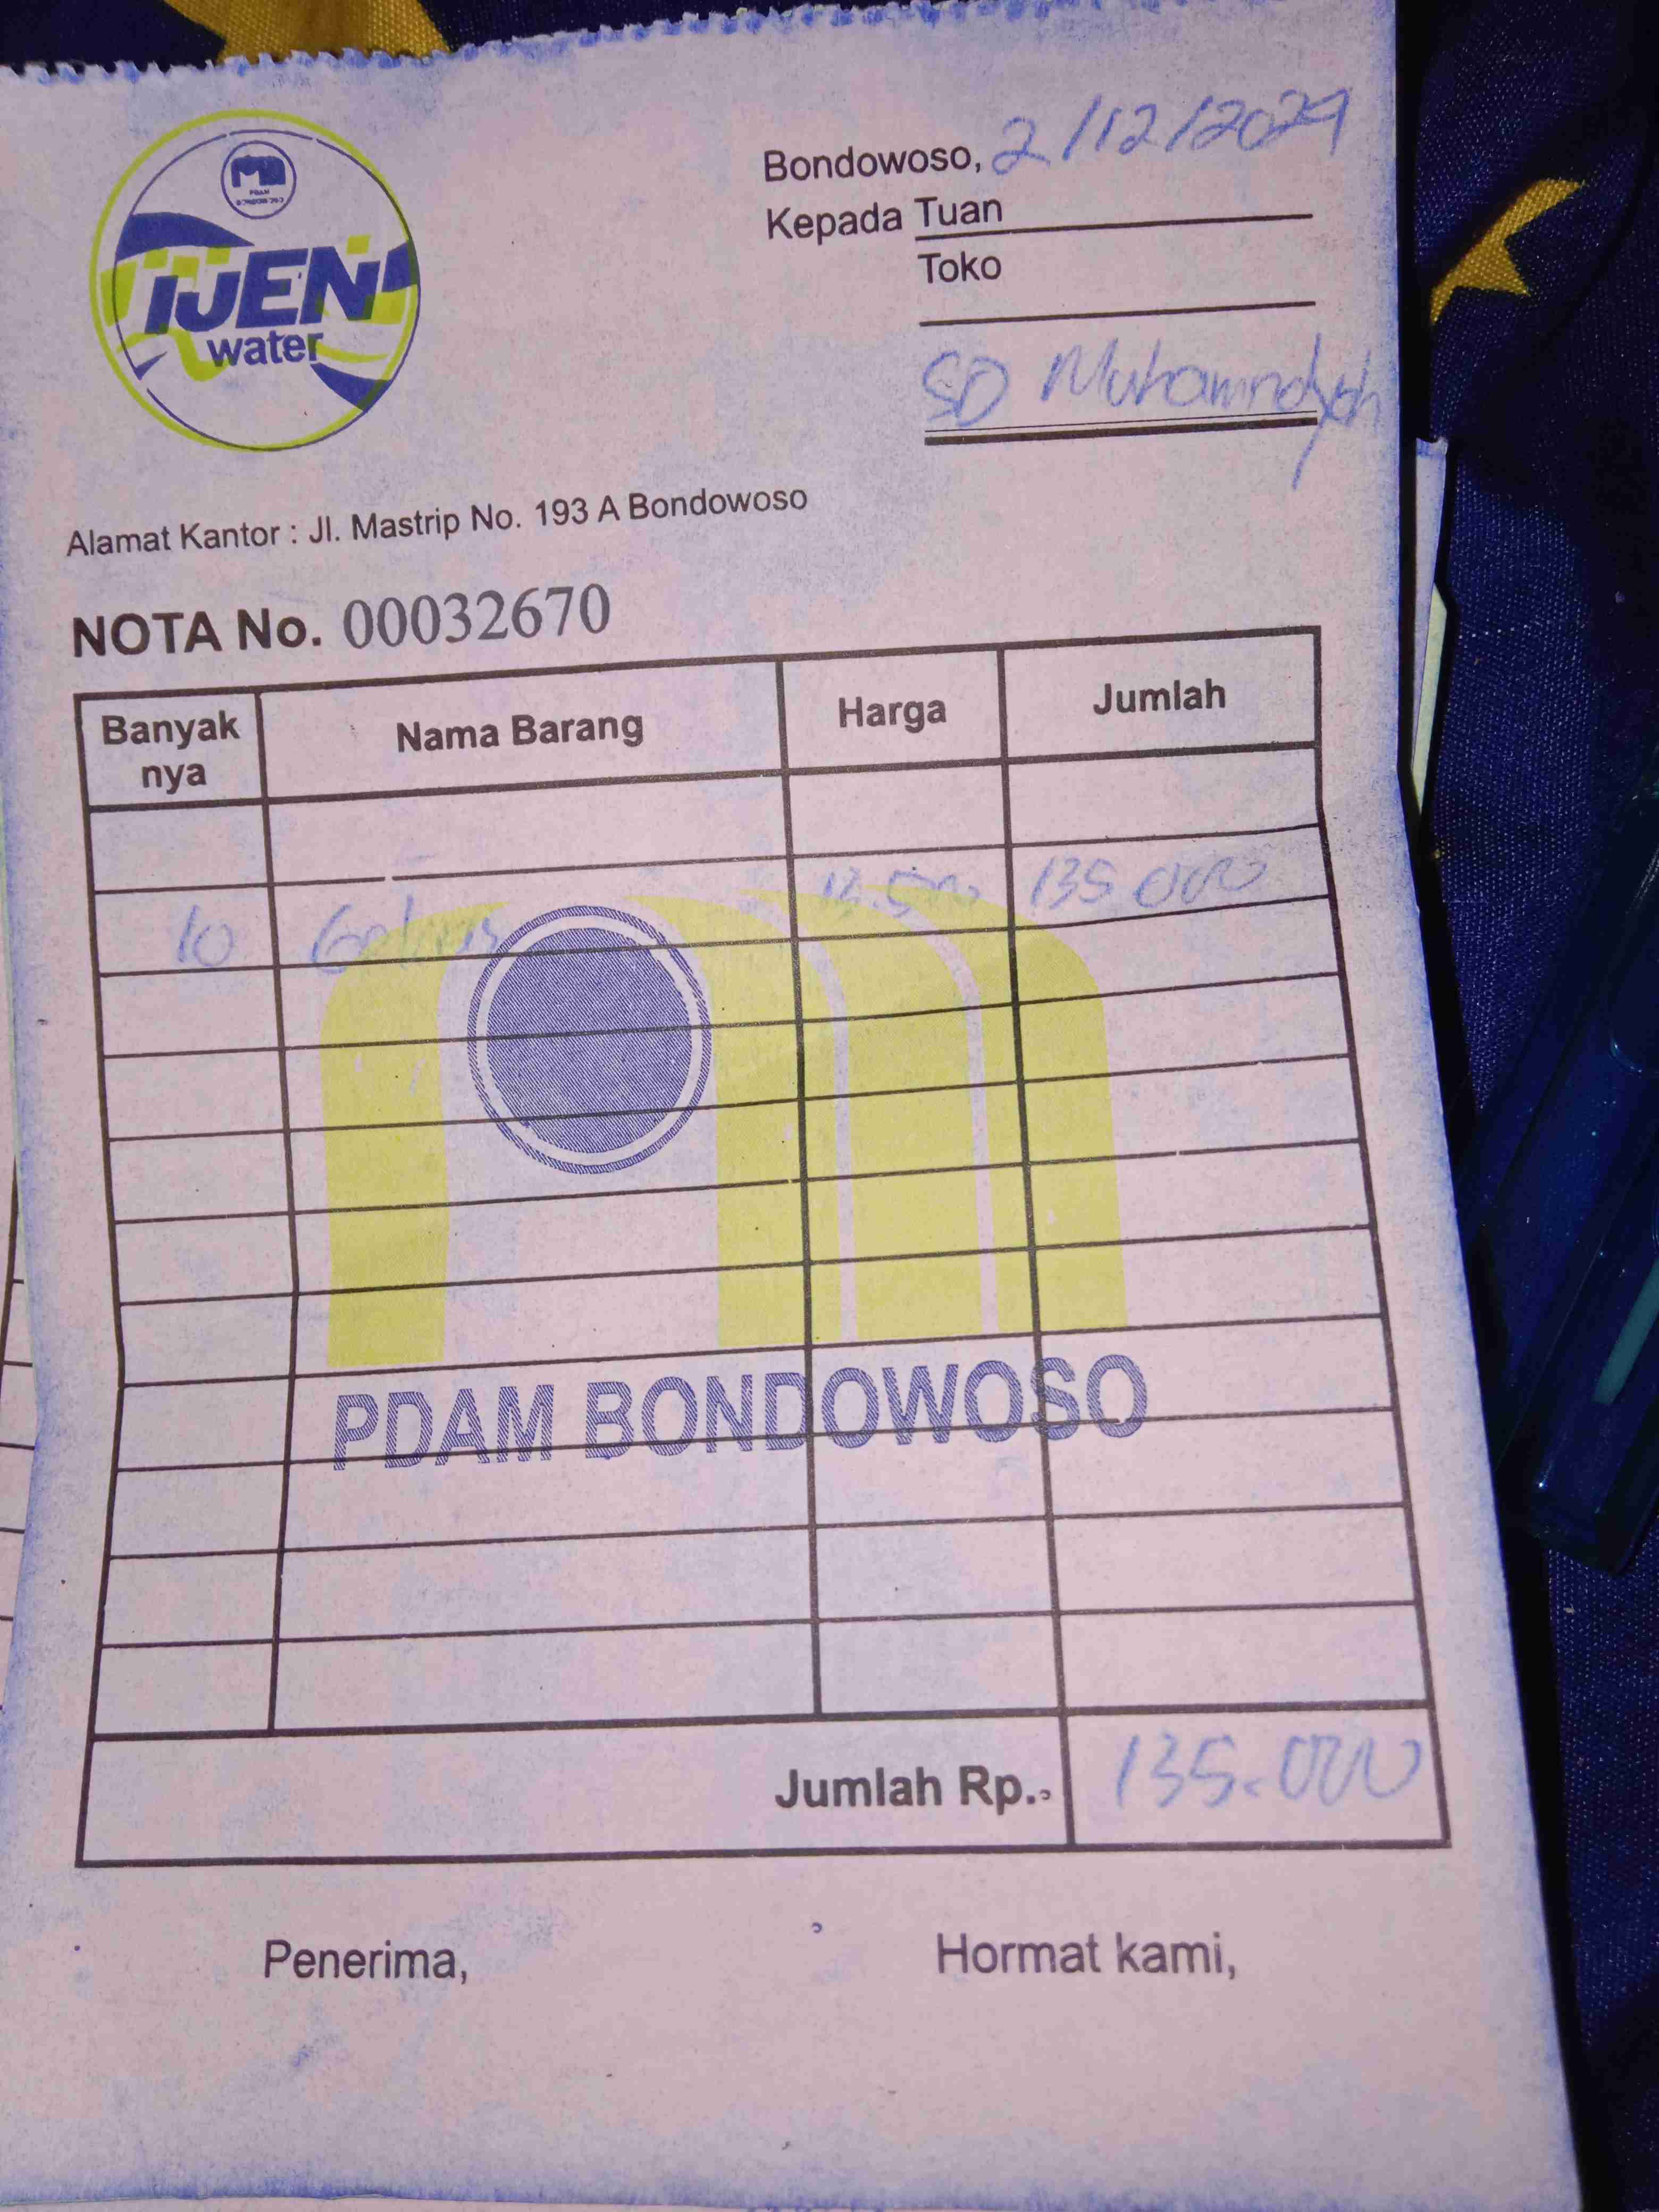 PDAM
BONDOWOSO
IJEN
water
Bondowoso, 2/12/2024
Kepada Tuan
Toko
SD Muhammdyah
Alamat Kantor : Jl. Mastrip No. 193 A Bondowoso
NOTA No. 00032670
Banyak nya Nama Barang Harga Jumlah
10 13.500 135.000
PDAM BONDOWOSO
Jumlah Rp. 135.000
Penerima, Hormat kami,